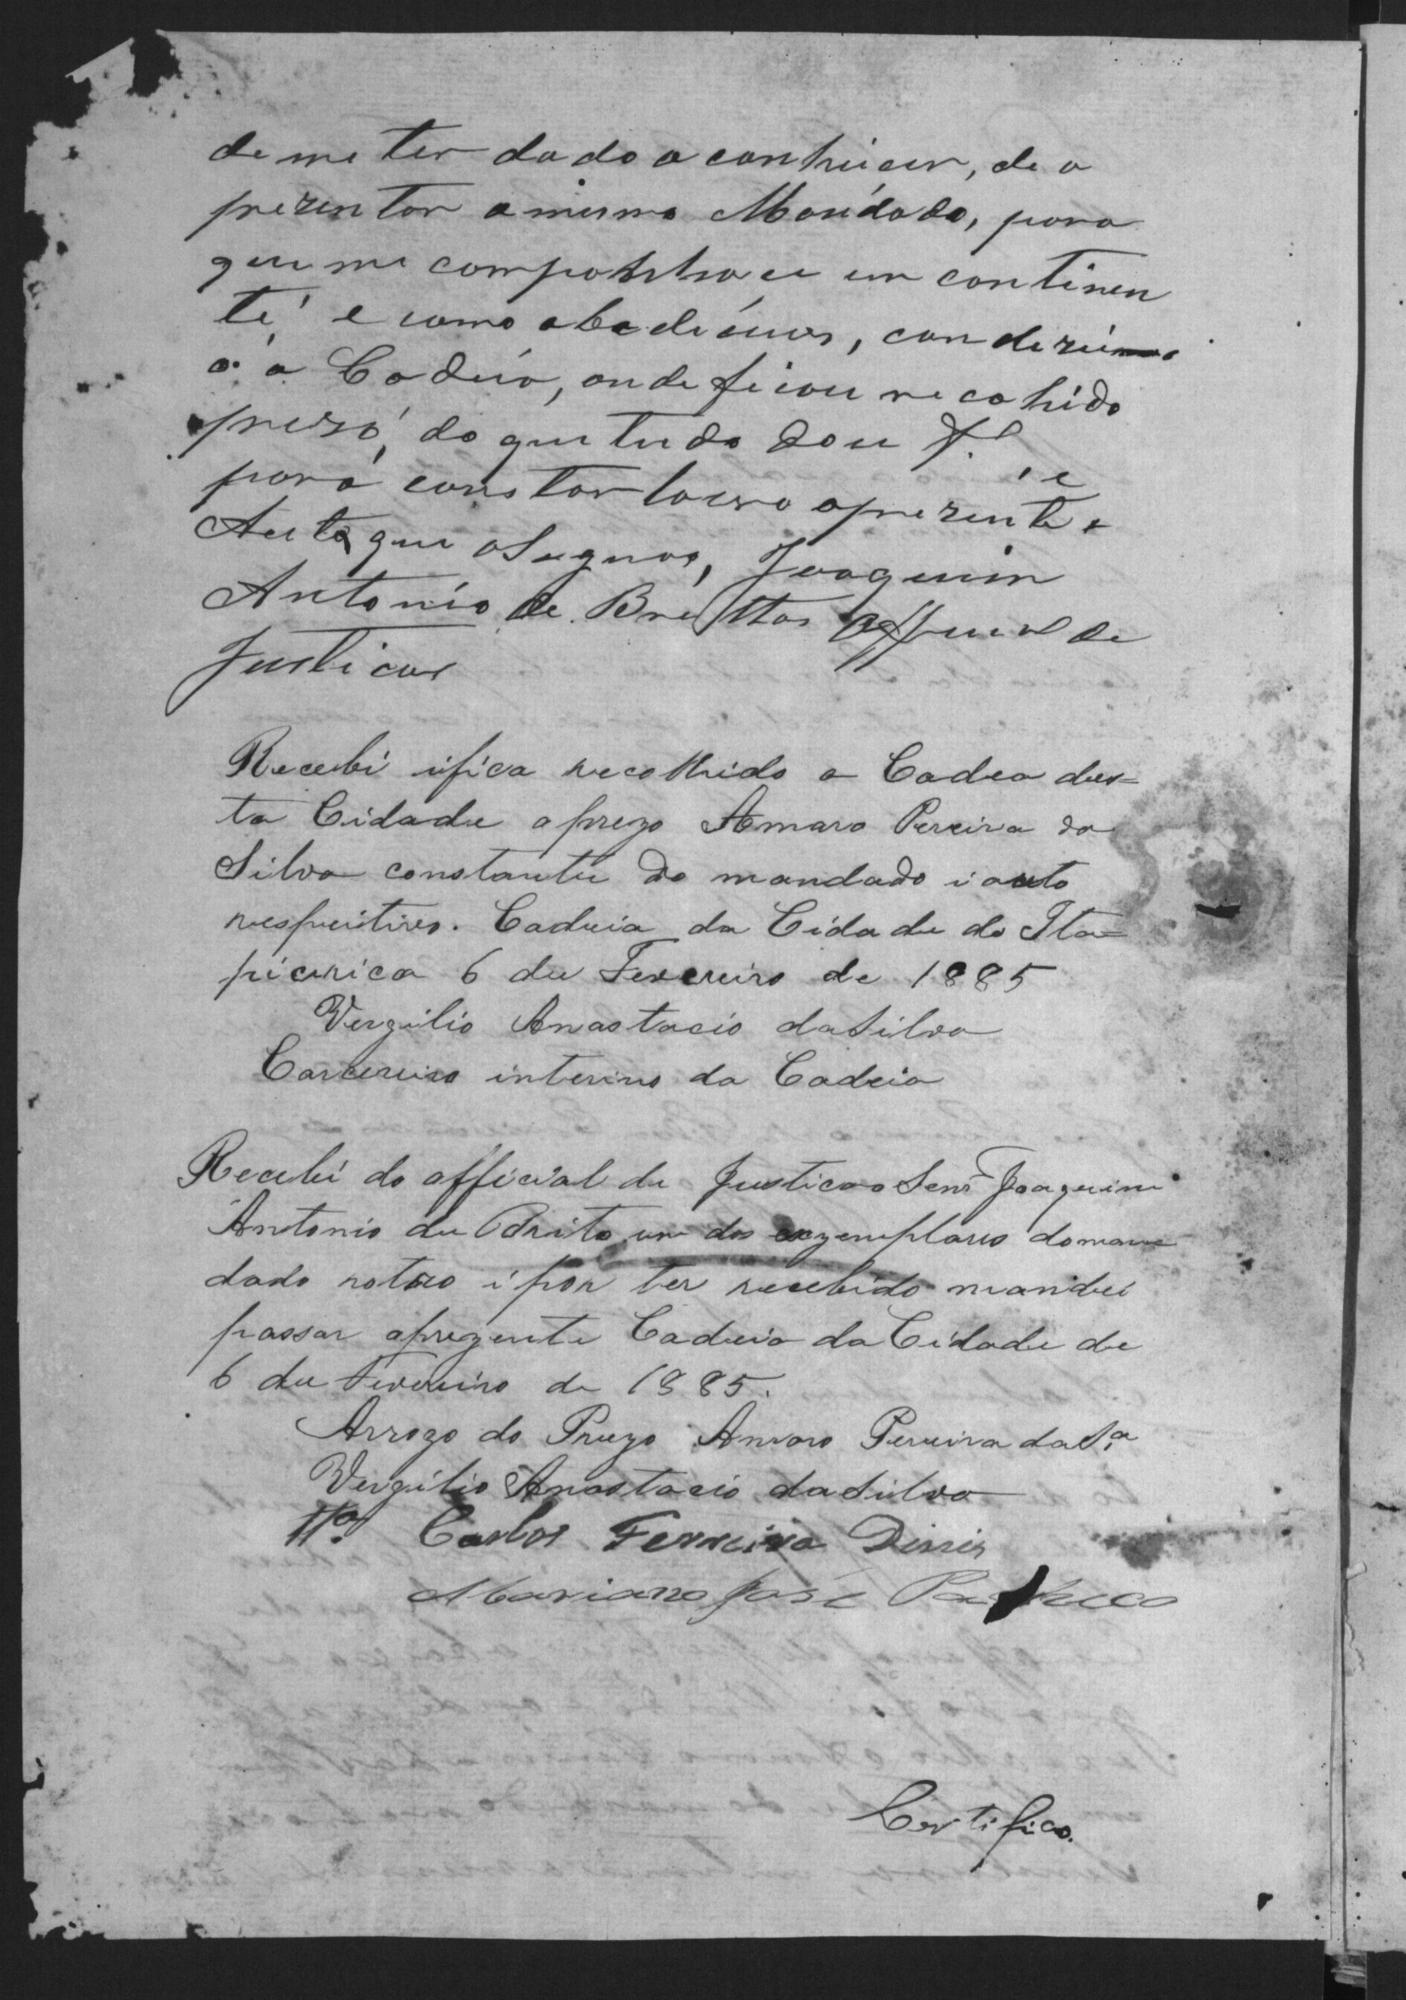 de me ter dado a conhecer, de a
prezentar o mesmo Mandado, para
que me acompanhace em continen
te e como obedeceu, conduzimo
o a Cadeia, onde ficou recolhido
prezo, do que tudo dou fé. e
para constar lavro o prezente
Auto que asigno, Joaquim
Antonio de Brittos Official de
Justica
Recebi ifica recolhido a Cadea des=
ta Cidade o prezo Amaro Pereira da
Silva constante do mandado i auto
respeitivo. Cadeia da Cidade de Ita=
picirica 6 de Fevereiro de 1885
Vergilio Anastacio da Silva
Carcereiro interino da Cadeia
Recebi do official de Justica o Senr Joaquim
Antonio de Brito um dos exzemplares do man
dado retro i por ter recebido mandei
passar a prezente Cadeia da Cidade de
6 de Fevereiro de 1885.
Arrogo do Prezo Amaro Pereira da Sa
Vergilio Anastacio da Silva
Ta. Carlos Ferreira Diniz
Mariano José Pacheco
Certifico.